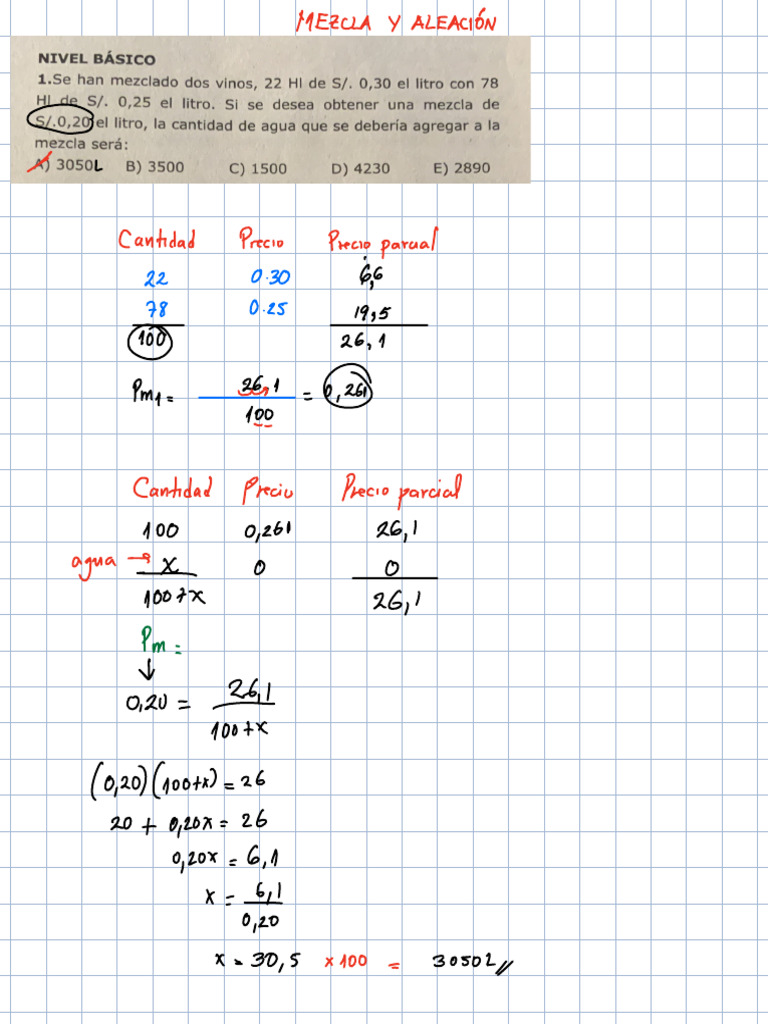 MEZCLA Y ALEACIÓN
NIVEL BÁSICO
1.Se han mezclado dos vinos, 22 Hl de S/. 0,30 el litro con 78
Hl de S/. 0,25 el litro. Si se desea obtener una mezcla de
S/.0,20 el litro, la cantidad de agua que se debería agregar a la
mezcla será:
A) 3050L B) 3500 C) 1500 D) 4230 E) 2890
Cantidad Precio Precio parcial
22 0.30 6,6
78 0.25 19,5
100 26,1
Pm1 = 26,1 / 100 = 0,261
Cantidad Precio Precio parcial
100 0,261 26,1
agua → x 0 0
100+x 26,1
Pm =
↓
0,20 = 26,1 / 100+x
(0,20)(100+x) = 26
20 + 0,20x = 26
0,20x = 6,1
x = 6,1 / 0,20
x = 30,5 x 100 = 3050L //